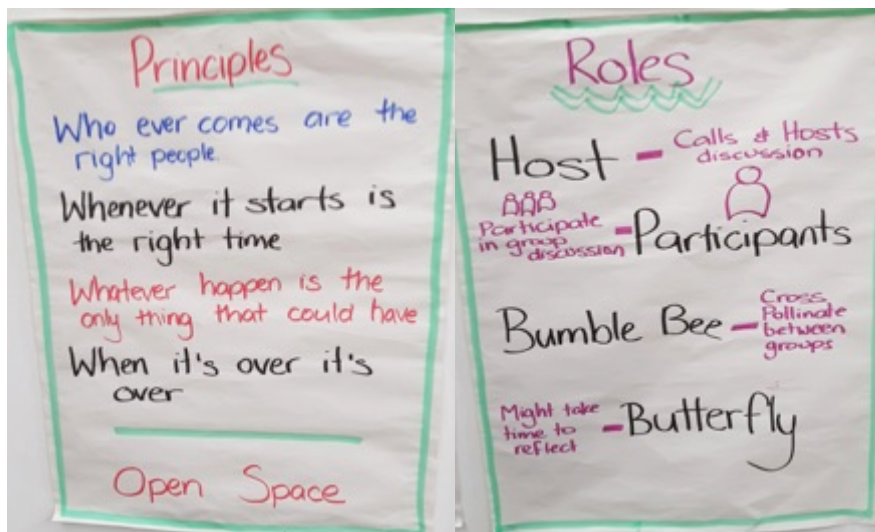 Principles
Who ever comes are the
right people.
Whenever it starts is
the right time
Whatever happen is the
only thing that could have
When it's over it's
over
Open Space
Roles
Host - Calls & Hosts
discussion
Participate
in group
discussion - Participants
Bumble Bee - Cross
Pollinate
between
groups
Might take
time to
reflect - Butterfly